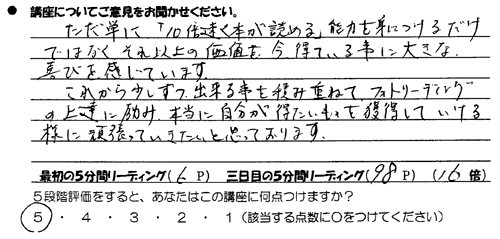 ● 講座についてご意見をお聞かせください。
ただ単に「10倍速く本が読める」能力を身につけるだけ
ではなく それ以上の価値を、今、得ている事に大きな
喜びを感じています。
これから少しずつ、出来る事を積み重ねて フォトリーディング
の上達に励み、本当に自分が得たいものを獲得していける
様に頑張っていきたいと思っております。
最初の5分間リーディング(6 P) 三日目の5分間リーディング(98 P) (16 倍)
5段階評価をすると、あなたはこの講座に何点つけますか?
5 ・ 4 ・ 3 ・ 2 ・ 1(該当する点数に○をつけてください)